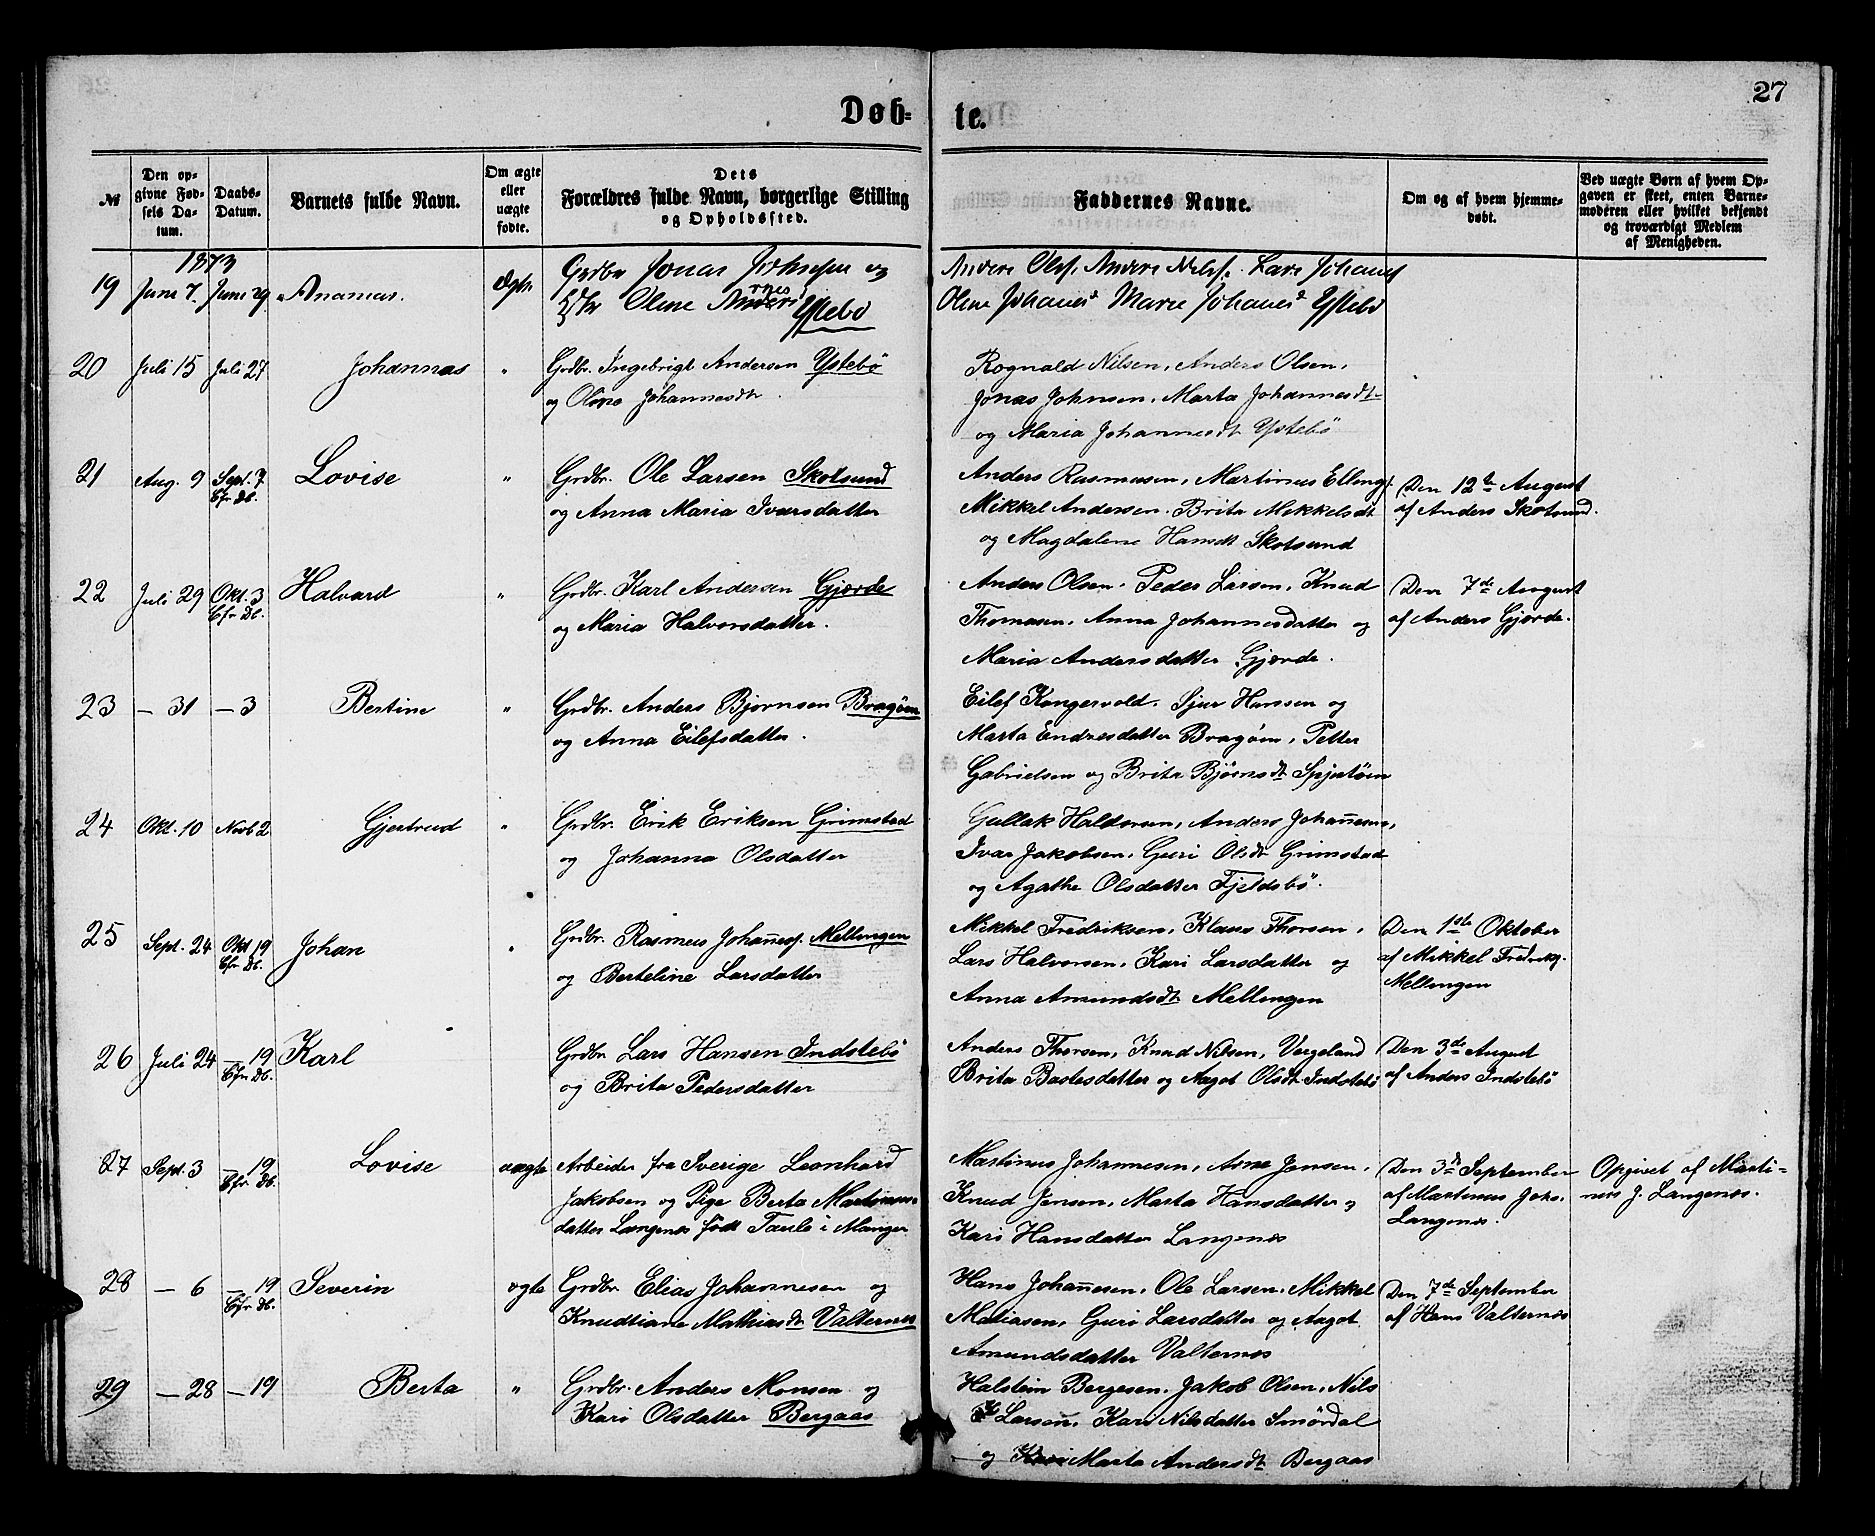 27
Døb-
te.
№
Den op-
givne Fød-
sels Da-
tum.
Daabs-
Datum.
Barnets fulde Navn.
Om ægte
eller
uægte
fødte.
Dets
Forældres fulde Navn, borgerlige Stilling
og Opholdssted.
Faddernes Navne.
Om og af hvem hjemme-
døbt.
Ved uægte Børn af hvem Op-
gaven er skeet, enten Barne-
moderen eller hvilket bekjendt
og troværdigt Medlem
af Menigheden.
1873
19 Juni 7. Juni 29 Ananias. Ægte Grdbr Jonas Johnsen og
Olene Anders Ystebø
Anders Olsf. Anders Nilsf. Lars Johanes
Olene Johanesd Marie Johanesd Ystebø
20 Juli 15 Juli 27 Johannas " Grdbr. Ingebrigt Andersen Ystebö
og Olene Johannesdtr.
Rognald Nilsen, Anders Olsen,
Jonas Johnsen, Marta Johannesdt
og Maria Johannesdt Ystebö
21 Aug. 9 Sept. 7 Cfr. Db. Lovise " Grdbr. Ole Larsen Skotsund
og Anna Maria Ivarsdatter
Anders Rasmusen, Martinus Ellingf.
Mikkel Andersen. Brita Mikkelsdt
og Magdalene Hansdt Skotsund
Den 12te August
af Anders Skotsund.
22 Juli 29 Okt. 3 Cfr. Db. Halvard " Grdbr. Karl Andersen Gjerde
og Maria Halvorsdatter.
Anders Olsen. Peder Larsen, Knud
Thomasen, Anna Johannesdatter og
Maria Andersdatter Gjerde.
Den 7de August
af Anders Gjerde.
23 — 31 — 3 Bertine " Grdbr. Anders Bjørnsen Bragöen
og Anna Eilefsdatter.
Eilef Kongsvold. Sjur Hansen og
Marta Endresdatter Bragöen, Petter
Gabrielsen og Brita Bjørnsdt Spjertöen
24 Okt. 10 Novb 2 Gjertrud " Grdbr. Erik Eriksen Grimstad
og Johanna Olsdatter
Gullak Haldorsen, Anders Johannesen,
Ivar Jakobsen, Guri Olsdt Grimstad
og Agathe Olsdatter Fjeldsbö.
25 Sept. 24 Okt 19 Cfr. Db. Johan " Grdbr. Rasmus Johannesf. Mellingen
og Berteline Larsdatter
Mikkel Fredriksen, Klaus Thorsen,
Lars Halvorsen, Kari Larsdatter og
Anna Amundsdt Mellingen
Den 1ste Oktober
af Mikkel Fredrikf.
Mellingen
26 Juli 24 — 19 Cfr. Db. Karl Grdbr Lars Hansen Indstebö
og Brita Pedersdatter
Anders Thorsen, Knud Nilsen, Vergeland
Brita Bastesdatter og Aagot Olsdt Indstebö
Den 3de August
af Anders Indstebö
27 Sept. 3 — 19 Cfr. Db. Lovise uægte Arbeider fra Sverige Leonhard
Jakobsen og Pige Berta Martinus-
datter Langenes född Taule i Manger
Martinus Johannesen, Arne Jensen,
Knud Jensen, Marta Hansdatter og
Kari Hansdatter Langenes
Den 3de September
af Martinus Johs.
Langenes.
Opgivet af Marti-
nus J. Langenes.
28 — 6 — 19 Cfr. Db. Severin ægte Grdbr. Elias Johannesen og
Knudtiane Mathiasdt Valternes
Hans Johannesen. Ole Larsen. Mikkel
Matiasen, Guri Larsdatter og Aagot
Amundsdatter Valternes
Den 7de September
af Hans Valternes
29 — 28 — 19 Berta " Grdbr. Anders Monsen og
Kari Olsdatter Bergaas
Halstein Bergesen. Jakob Olsen, Nils
Larsen, Kari Nilsdatter Smördal
og Marta Andersdt Bergaas